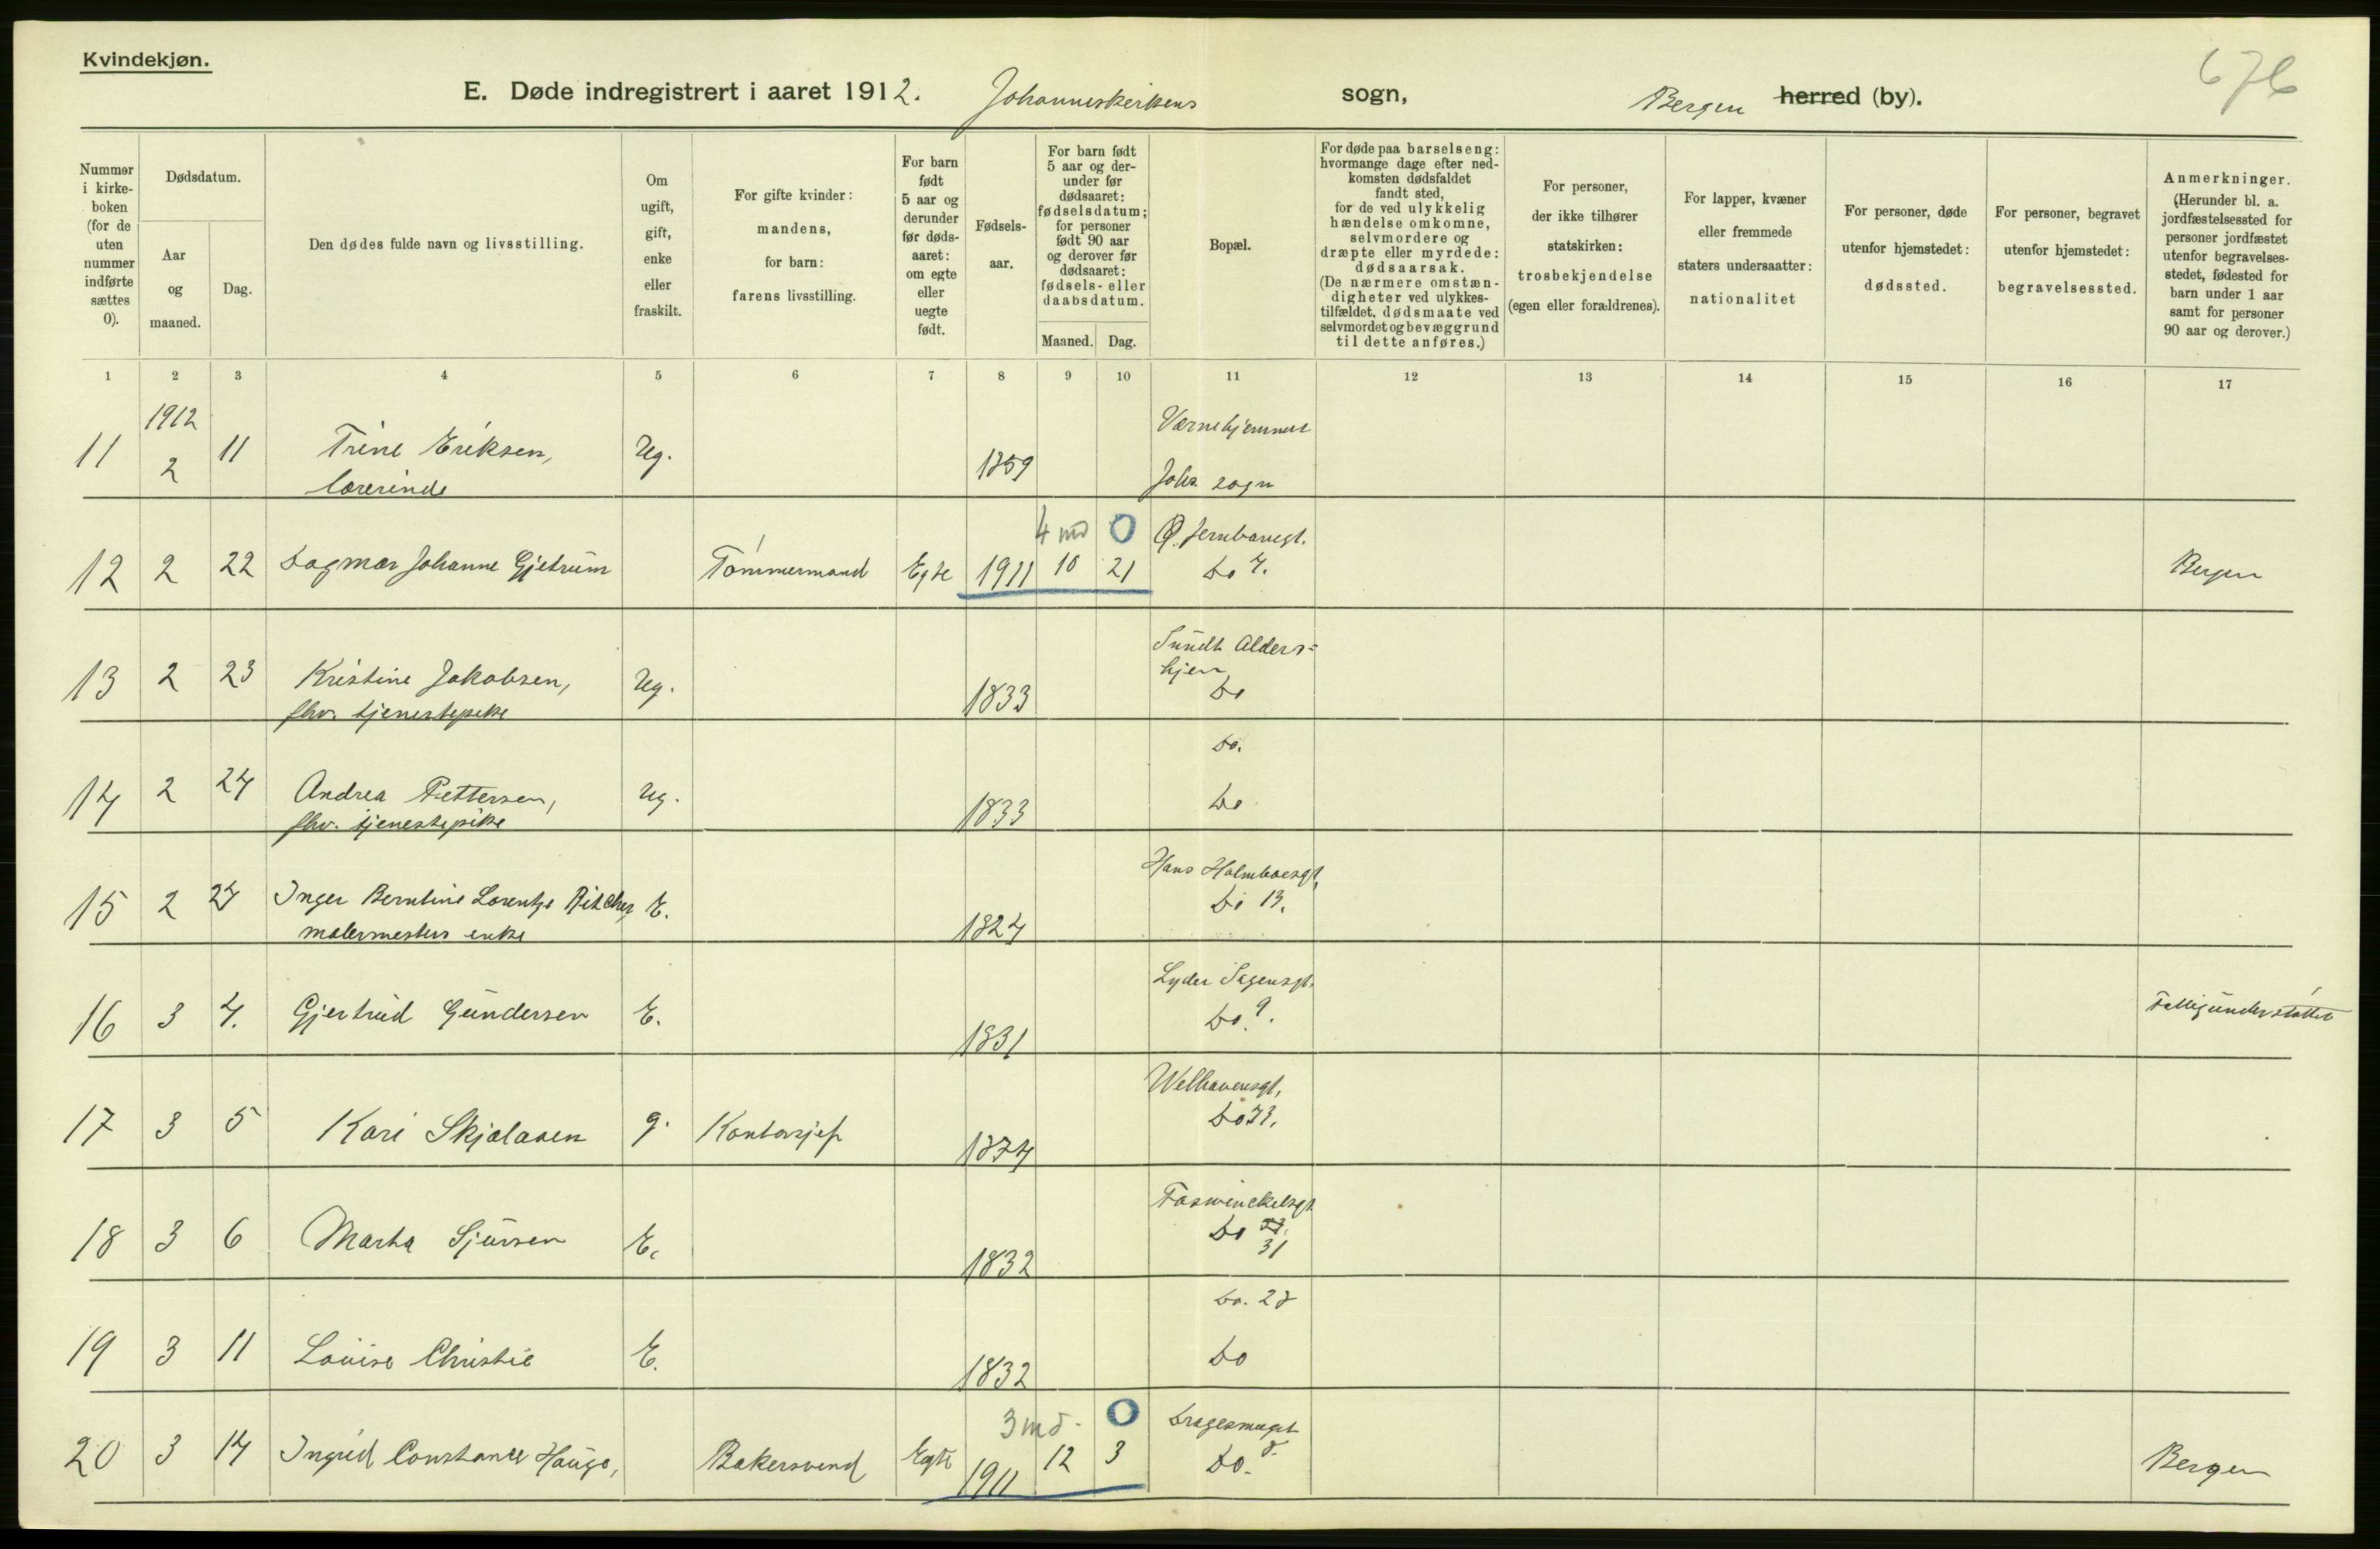 Kvindekjøn.
676
E. Døde indregistrert i aaret 1912. Johanneskirkens sogn, Bergen herred (by).
Nummer i kirkeboken (for de uten nummer indførte sættes 0).
Dødsdatum.
Aar og maaned.
Dag.
Den dødes fulde navn og livsstilling.
Om ugift, gift, enke eller fraskilt.
For gifte kvinder: mandens, for barn: farens livsstilling.
For barn født 5 aar og derunder før dødsaaret: om egte eller uegte født.
Fødselsaar.
For barn født 5 aar og derunder før dødsaaret: fødselsdatum; for personer født 90 aar og derover før dødsaaret: fødsels- eller daabsdatum.
Maaned. Dag.
Bopæl.
For døde paa barselseng: hvormange dage efter nedkomsten dødsfaldet fandt sted, for de ved ulykkelig hændelse omkomne, selvmordere og dræpte eller myrdede: dødsaarsak. (De nærmere omstændigheter ved ulykkestilfældet, dødsmaate ved selvmordet og bevæggrund til dette anføres.)
For personer, der ikke tilhører statskirken: trosbekjendelse (egen eller forældrenes).
For lapper, kvæner eller fremmede staters undersaatter: nationalitet
For personer, døde utenfor hjemstedet: dødssted.
For personer, begravet utenfor hjemstedet: begravelsessted.
Anmerkninger. (Herunder bl. a. jordfæstelsessted for personer jordfæstet utenfor begravelsesstedet, fødested for barn under 1 aar samt for personer 90 aar og derover.)
1 2 3 4 5 6 7 8 9 10 11 12 13 14 15 16 17
1912 Værnehjemmet
11 2 11 Trine Eriksen, Ug. 1859
lærerinde Johs. sogn
4 md 0 Ø. Jernbanegt.
12 2 22 Dagmar Johanne Gjetrum Tømmermand Egte 1911 10 21 Do 7. Bergen
Sundts Alders-
hjem
13 2 23 Kristine Jakobsen, Ug. 1833 Do
fhv. tjenestepike
Do.
14 2 24 Andrea Pettersen, Ug. 1833 Do
fhv. tjenestepike
Hans Holmboesgt.
15 2 27 Inger Berntine Lorentze Ritcher, E. 1824 Do 13.
malermesters enke
Lyder Sagensgt.
16 3 4. Gjertrud Gundersen E. 1831 Do. 9. Fattigunderstøttet
Welhavensgt.
17 3 5 Kari Skjelaaen g. Kontorsjef 1874 Do 73.
Foswinckelsgt
18 3 6 Marta Sjursen E. 1832 Do 31
Do. 28
19 3 11 Louise Christie E. 1832 Do
3 md. 0 Dragesmuget
20 3 14 Ingrid Constance Hauge, Bakersvend Egte 1911 12 3 Do. 8. Bergen